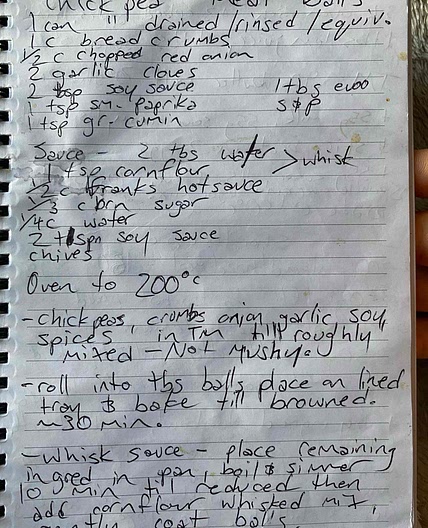 Chick pea "Meat" Balls
1 can " drained/rinsed/equiv.
1 c bread crumbs
1/2 c chopped red onion
2 garlic cloves
2 tbsp soy sauce 1 tbs evoo
1 tsp sm. paprika s & p
1 tsp gr. cumin
Sauce - 2 tbs water > whisk
1 tsp cornflour
1/2 c Franks hotsauce
1/3 c brn sugar
1/4 c water
2 tspn soy sauce
chives
Oven to 200°c
- chickpeas, crumbs onion garlic soy,
spices in TM till roughly
mixed - Not mushy.
- roll into tbs balls place on lined
tray & bake till browned.
~30 min.
- whisk sauce - place remaining
ingred in pan, boil & simmer
10 min til reduced then
add cornflour whisked mix,
coat balls